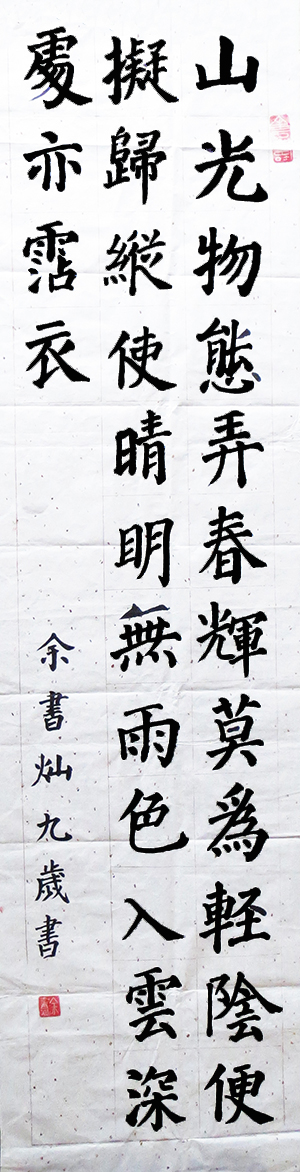 山光物態弄春輝莫為輕陰便
擬歸縱使晴明無雨色入雲深
處亦霑衣
余書灿九歲書